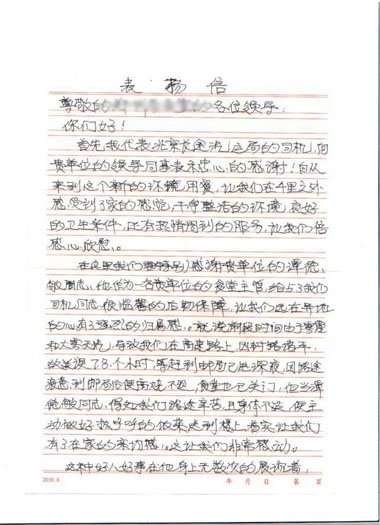 表扬信
尊敬的 各位领导:
你们好!
首先我代表北京 运局的司机,向
贵单位的领导同事表示忠心的感谢!自从
来到这个新的环境用餐,让我们在千里之外
感受到了家的感觉,干净整洁的环境,良好
的卫生条件,还有热情周到的服务,让我们倍
感心欣慰。
在这里我们要特别感谢贵单位的谭德
敏同志,他作为一名贵单位的食堂主管,给与了我们
司机同志很温馨的后勤保障,让我们远在异地
的心有了 的归属感。就说前段时间由于雾霾
和大雾天气,导致我们在高速路上,因封路堵车,
故 误7.8个小时,等赶到邮局已进深夜,因路途
疲惫,到邮局后便 不退,食堂也已关门,但当谭
德敏同志,得知我们路途辛苦且身体不适,便主
动做好 的饭菜送到楼上,着实让我们
有了在家的亲切感。这让我们非常感动。
这种好人好事在他身上无数次的展示着,
2010.6 年 月 日 第 页